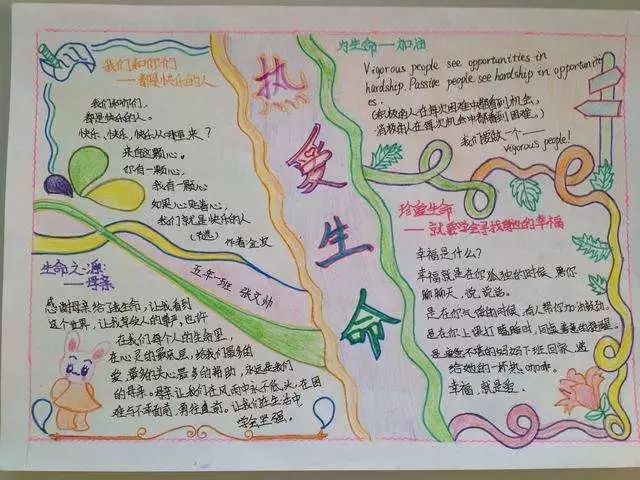 热爱生命
我们和你们
——都是快乐的人
我们和你们，
都是快乐的人。
快乐、快乐，快乐从哪里来？
来自这颗心。
你有一颗心
我有一颗心
如果心贴着心，
我们就是快乐的人
(书选) 作者:金波
为生命——加油
Vigorous people see opportunities in
hardship. Passive people see hardship in opportuniti
es.
(积极的人在每次困难中都看到机会，
消极的人在每次机会中都看到困难。)
我们要做一个——
vigorous people!
生命之源
——母亲
五年一班 张文帅
感谢母亲给了我生命，让我看到
这个世界，让我
在我们每个人的生命里，
在心灵的最深里，给我们最多的
爱，最多的关心最多的帮助，永远是我们
的母亲。母亲让我们在风雨中永不低头，在困
难与不幸面前，勇往直前，让我们在生活中
学会坚强。
珍重生命
——就要学会寻找 的幸福
幸福是什么？
幸福就是在你孤独的时候，帮你
聊聊天，说说话。
是在你气馁的时候，有人帮你加油鼓劲。
是在你上课打瞌睡时，同桌善意的提醒。
是 妈妈下班回家，递
给她的一杯热
幸福，就是爱。